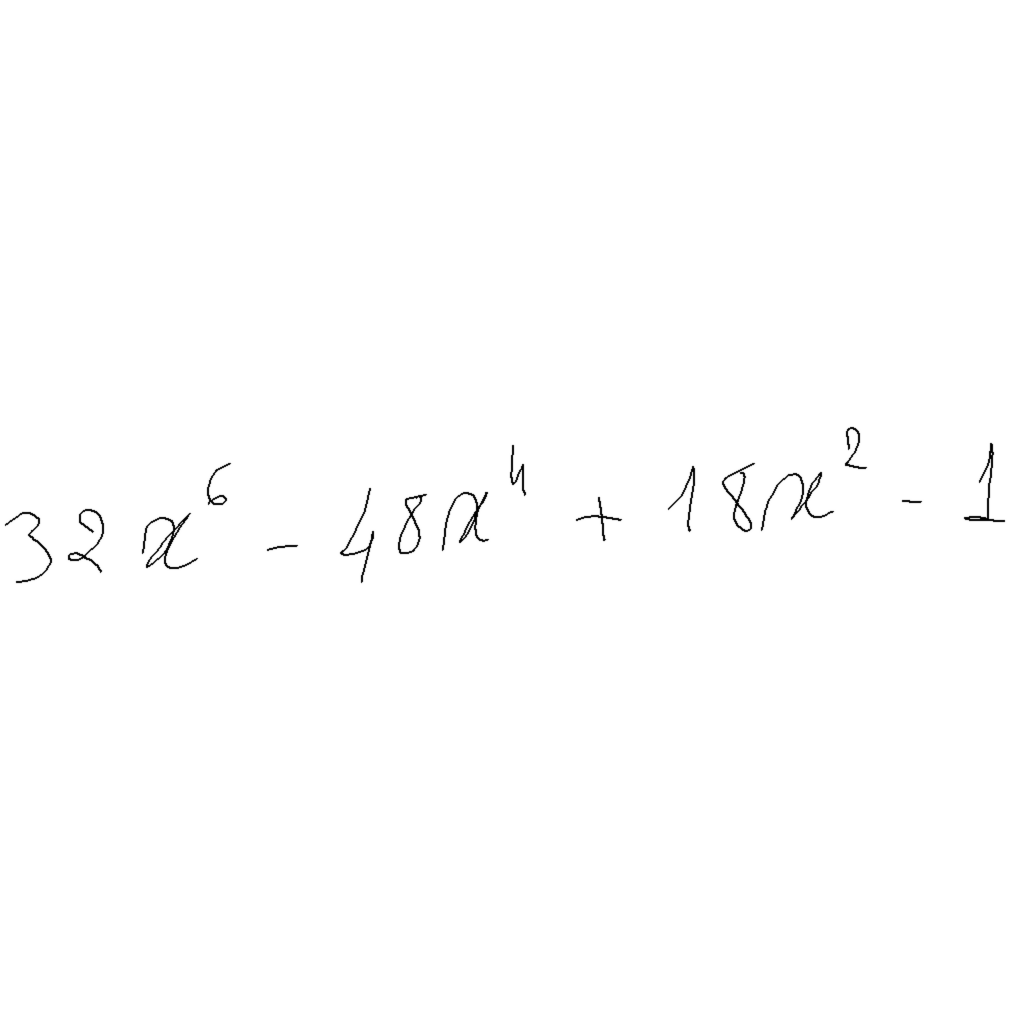 32x⁶ - 48x⁴ + 18x² - 1